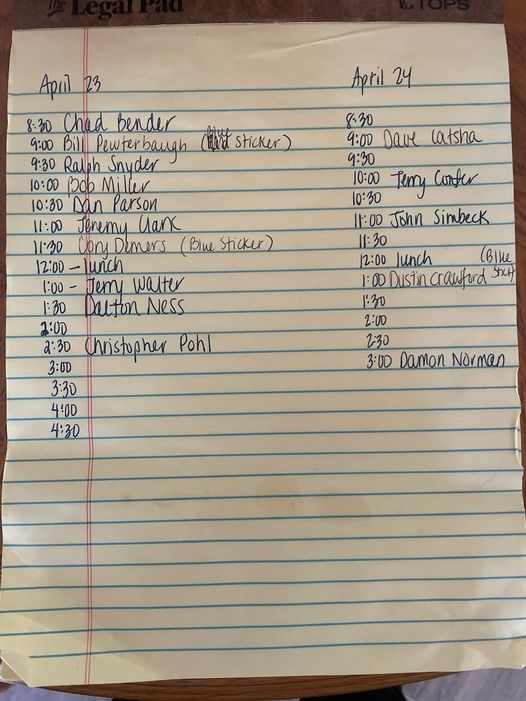 The Legal Pad
TOPS
April 23
8:30 Chad Bender
9:00 Bill Pewterbaugh (Blue Sticker)
9:30 Ralph Snyder
10:00 Bob Miller
10:30 Dan Parson
11:00 Jeremy Clark
11:30 Cory Demers (Blue Sticker)
12:00 - lunch
1:00 - Jerry Walter
1:30 Dalton Ness
2:00
2:30 Christopher Pohl
3:00
3:30
4:00
4:30
April 24
8:30
9:00 Dave Catsha
9:30
10:00 Terry Confer
10:30
11:00 John Simbeck
11:30
12:00 lunch
1:00 Dustin Crawford (Blue Stick)
1:30
2:00
2:30
3:00 Damon Norman